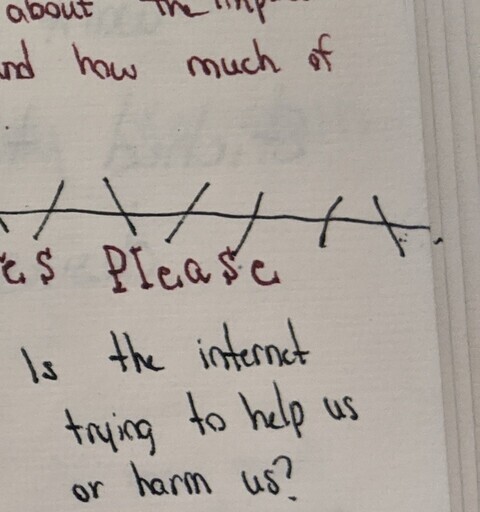 about the
how much of
Please
Is the internet
trying to help us
or harm us?